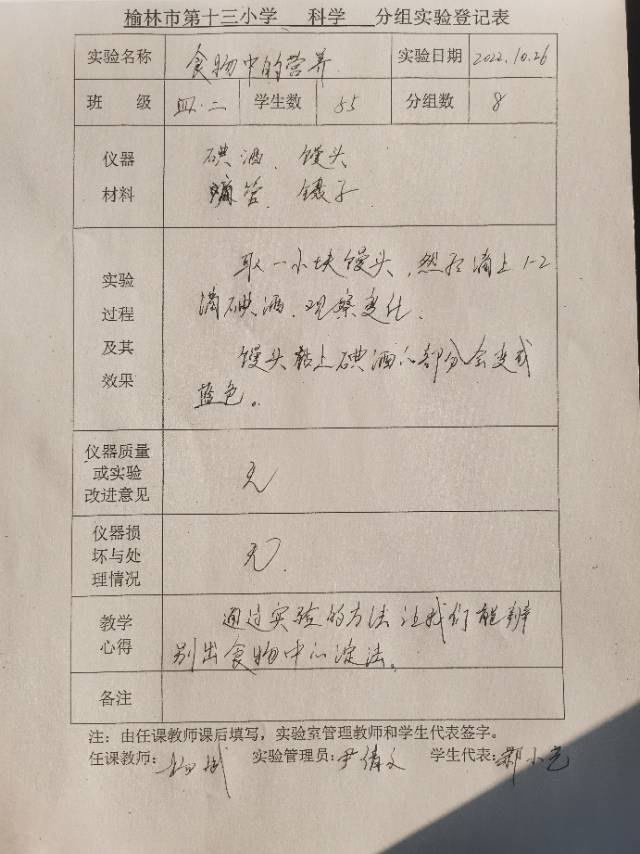 榆林市第十三小学 科学 分组实验登记表
实验名称 食物中的营养 实验日期 2022.10.26
班 级 四.二 学生数 55 分组数 8
仪器 碘酒、馒头
材料 滴管、镊子
实验
过程
及其
效果
取一小块馒头,然后滴上1-2
滴碘酒,观察变化.
馒头粘上碘酒的部分会变成
蓝色。
仪器质量
或实验
改进意见
无
仪器损
坏与处
理情况
无.
教学
心得
通过实验的方法让我们能辨
别出食物中的淀法。
备注
注:由任课教师课后填写,实验室管理教师和学生代表签字。
任课教师: 实验管理员:尹倩文 学生代表:郝小艺